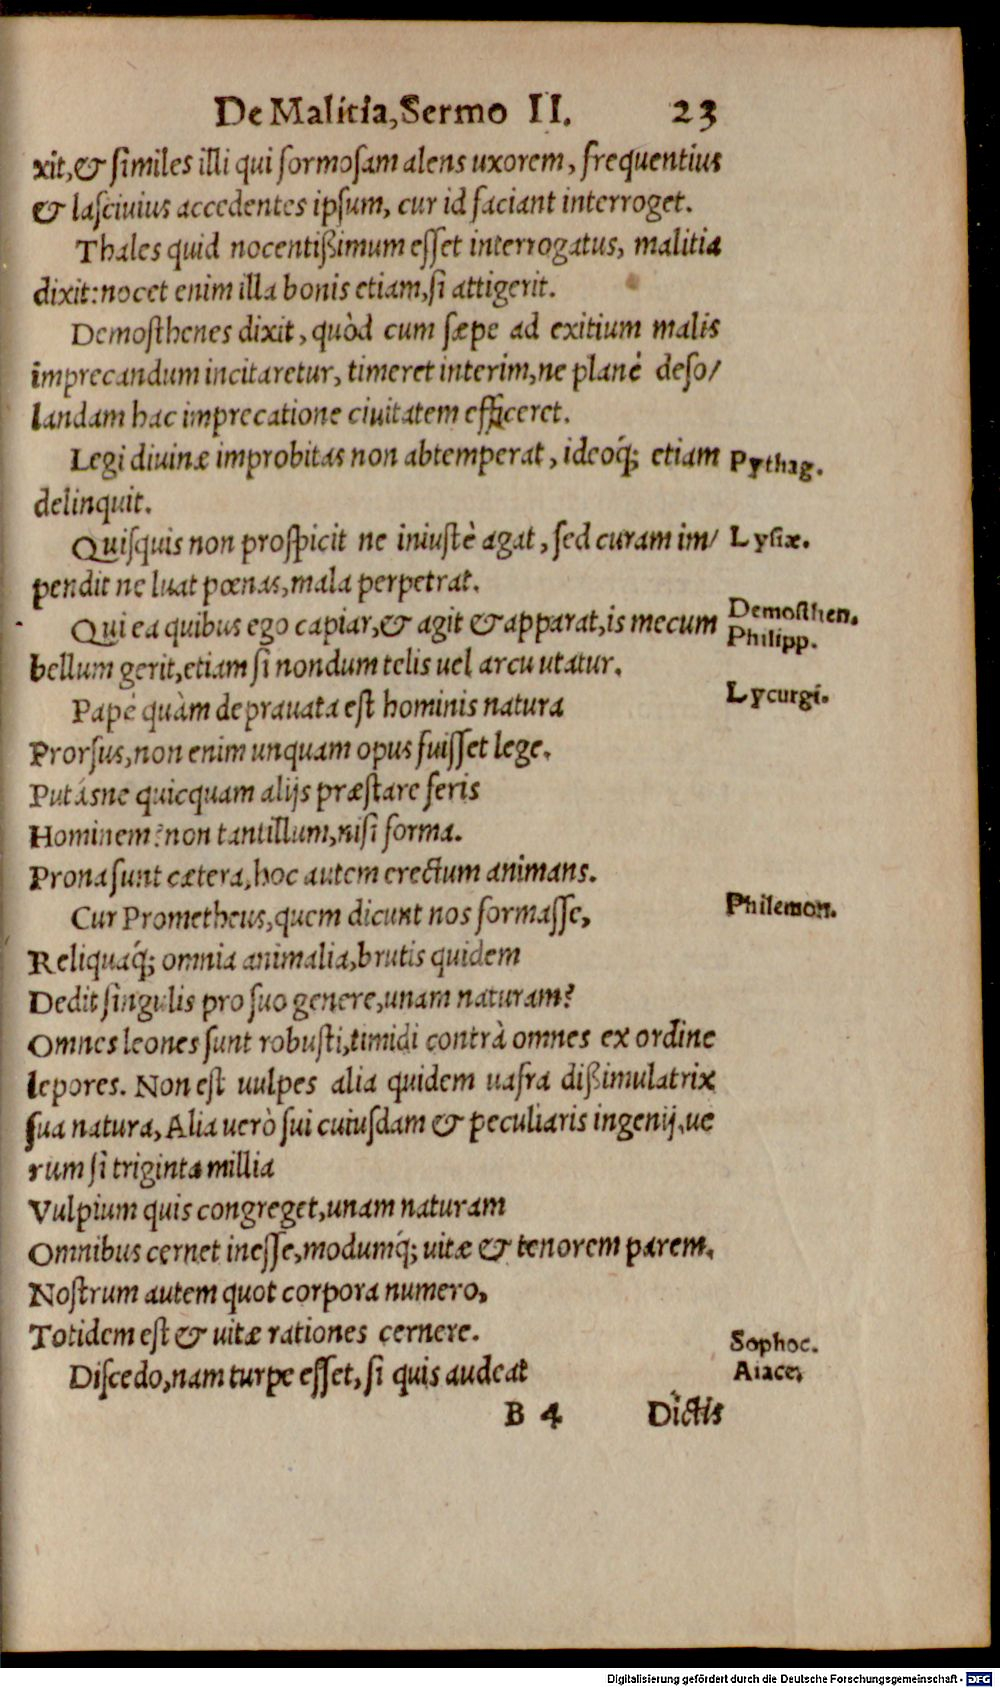 De Malitia, Sermo II. 23
xit, & similes illi qui formosam alens uxorem, frequentius
& lasciuius accedentes ipsum, cur id faciant interroget.
Thales quid nocentißimum esset interrogatus, malitia
dixit: nocet enim illa bonis etiam, si attigerit.
Demosthenes dixit, quòd cum sæpe ad exitium malis
imprecandum incitaretur, timeret interim, ne planè deso/
landam hac imprecatione ciuitatem efficeret.
Legi diuinæ improbitas non abtemperat, ideoq́; etiam Pythag.
delinquit.
Quisquis non prospicit ne iniustè agat, sed curam im/ Lysiæ.
pendit ne luat pœnas, mala perpetrat.
Qui ea quibus ego capiar, & agit & apparat, is mecum Demosthen.
Philipp.
bellum gerit, etiam si nondum telis uel arcu utatur.
Papè quàm deprauata est hominis natura Lycurgi.
Prorsus, non enim unquam opus fuisset lege.
Putásne quicquam alijs præstare feris
Hominem? non tantillum, nisi forma.
Prona sunt cætera, hoc autem erectum animans.
Cur Prometheus, quem dicunt nos formasse, Philemon.
Reliquaq́; omnia animalia, brutis quidem
Dedit singulis pro suo genere, unam naturam?
Omnes leones sunt robusti, timidi contrà omnes ex ordine
lepores. Non est uulpes alia quidem uafra dißimulatrix
sua natura, Alia uerò sui cuiusdam & peculiaris ingenij, ue
rum si triginta millia
Vulpium quis congreget, unam naturam
Omnibus cernet inesse, modumq́; uitæ & tenorem parem.
Nostrum autem quot corpora numero,
Totidem est & uitæ rationes cernere.
Discedo, nam turpe esset, si quis audeat Sophoc.
Aiace.
B 4 Dictis
Digitalisierung gefördert durch die Deutsche Forschungsgemeinschaft - DFG